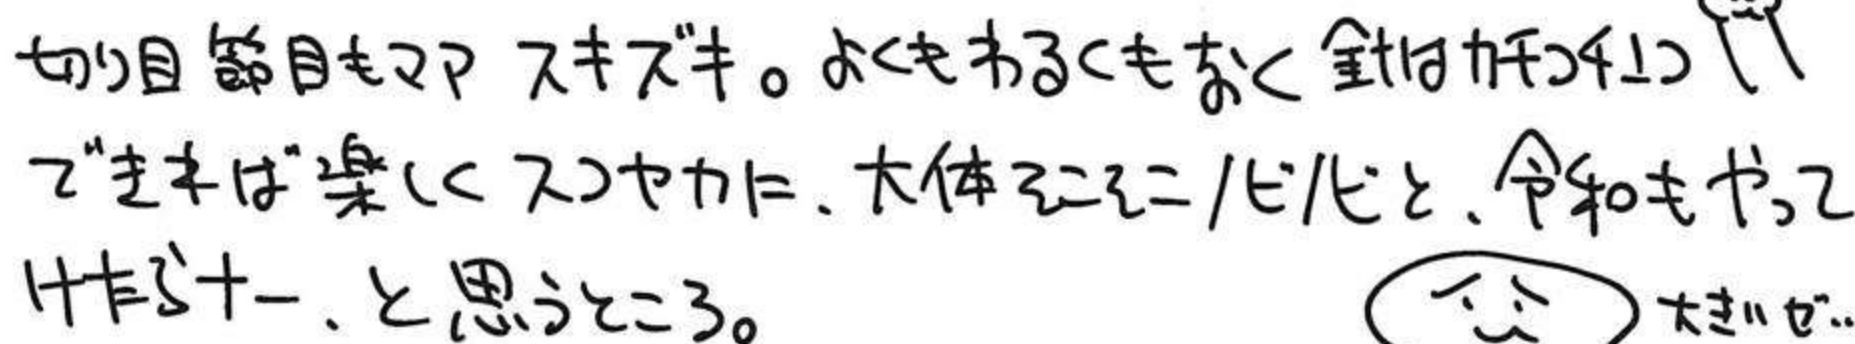 切り目 節目もママ スキズキ。よくもわるくもなく 針はカチコチユコ
できれば 楽しく スコヤカに、大体そこそこノビノビと、令和もやって
けたらナー、と思うところ。
大きいぜ..